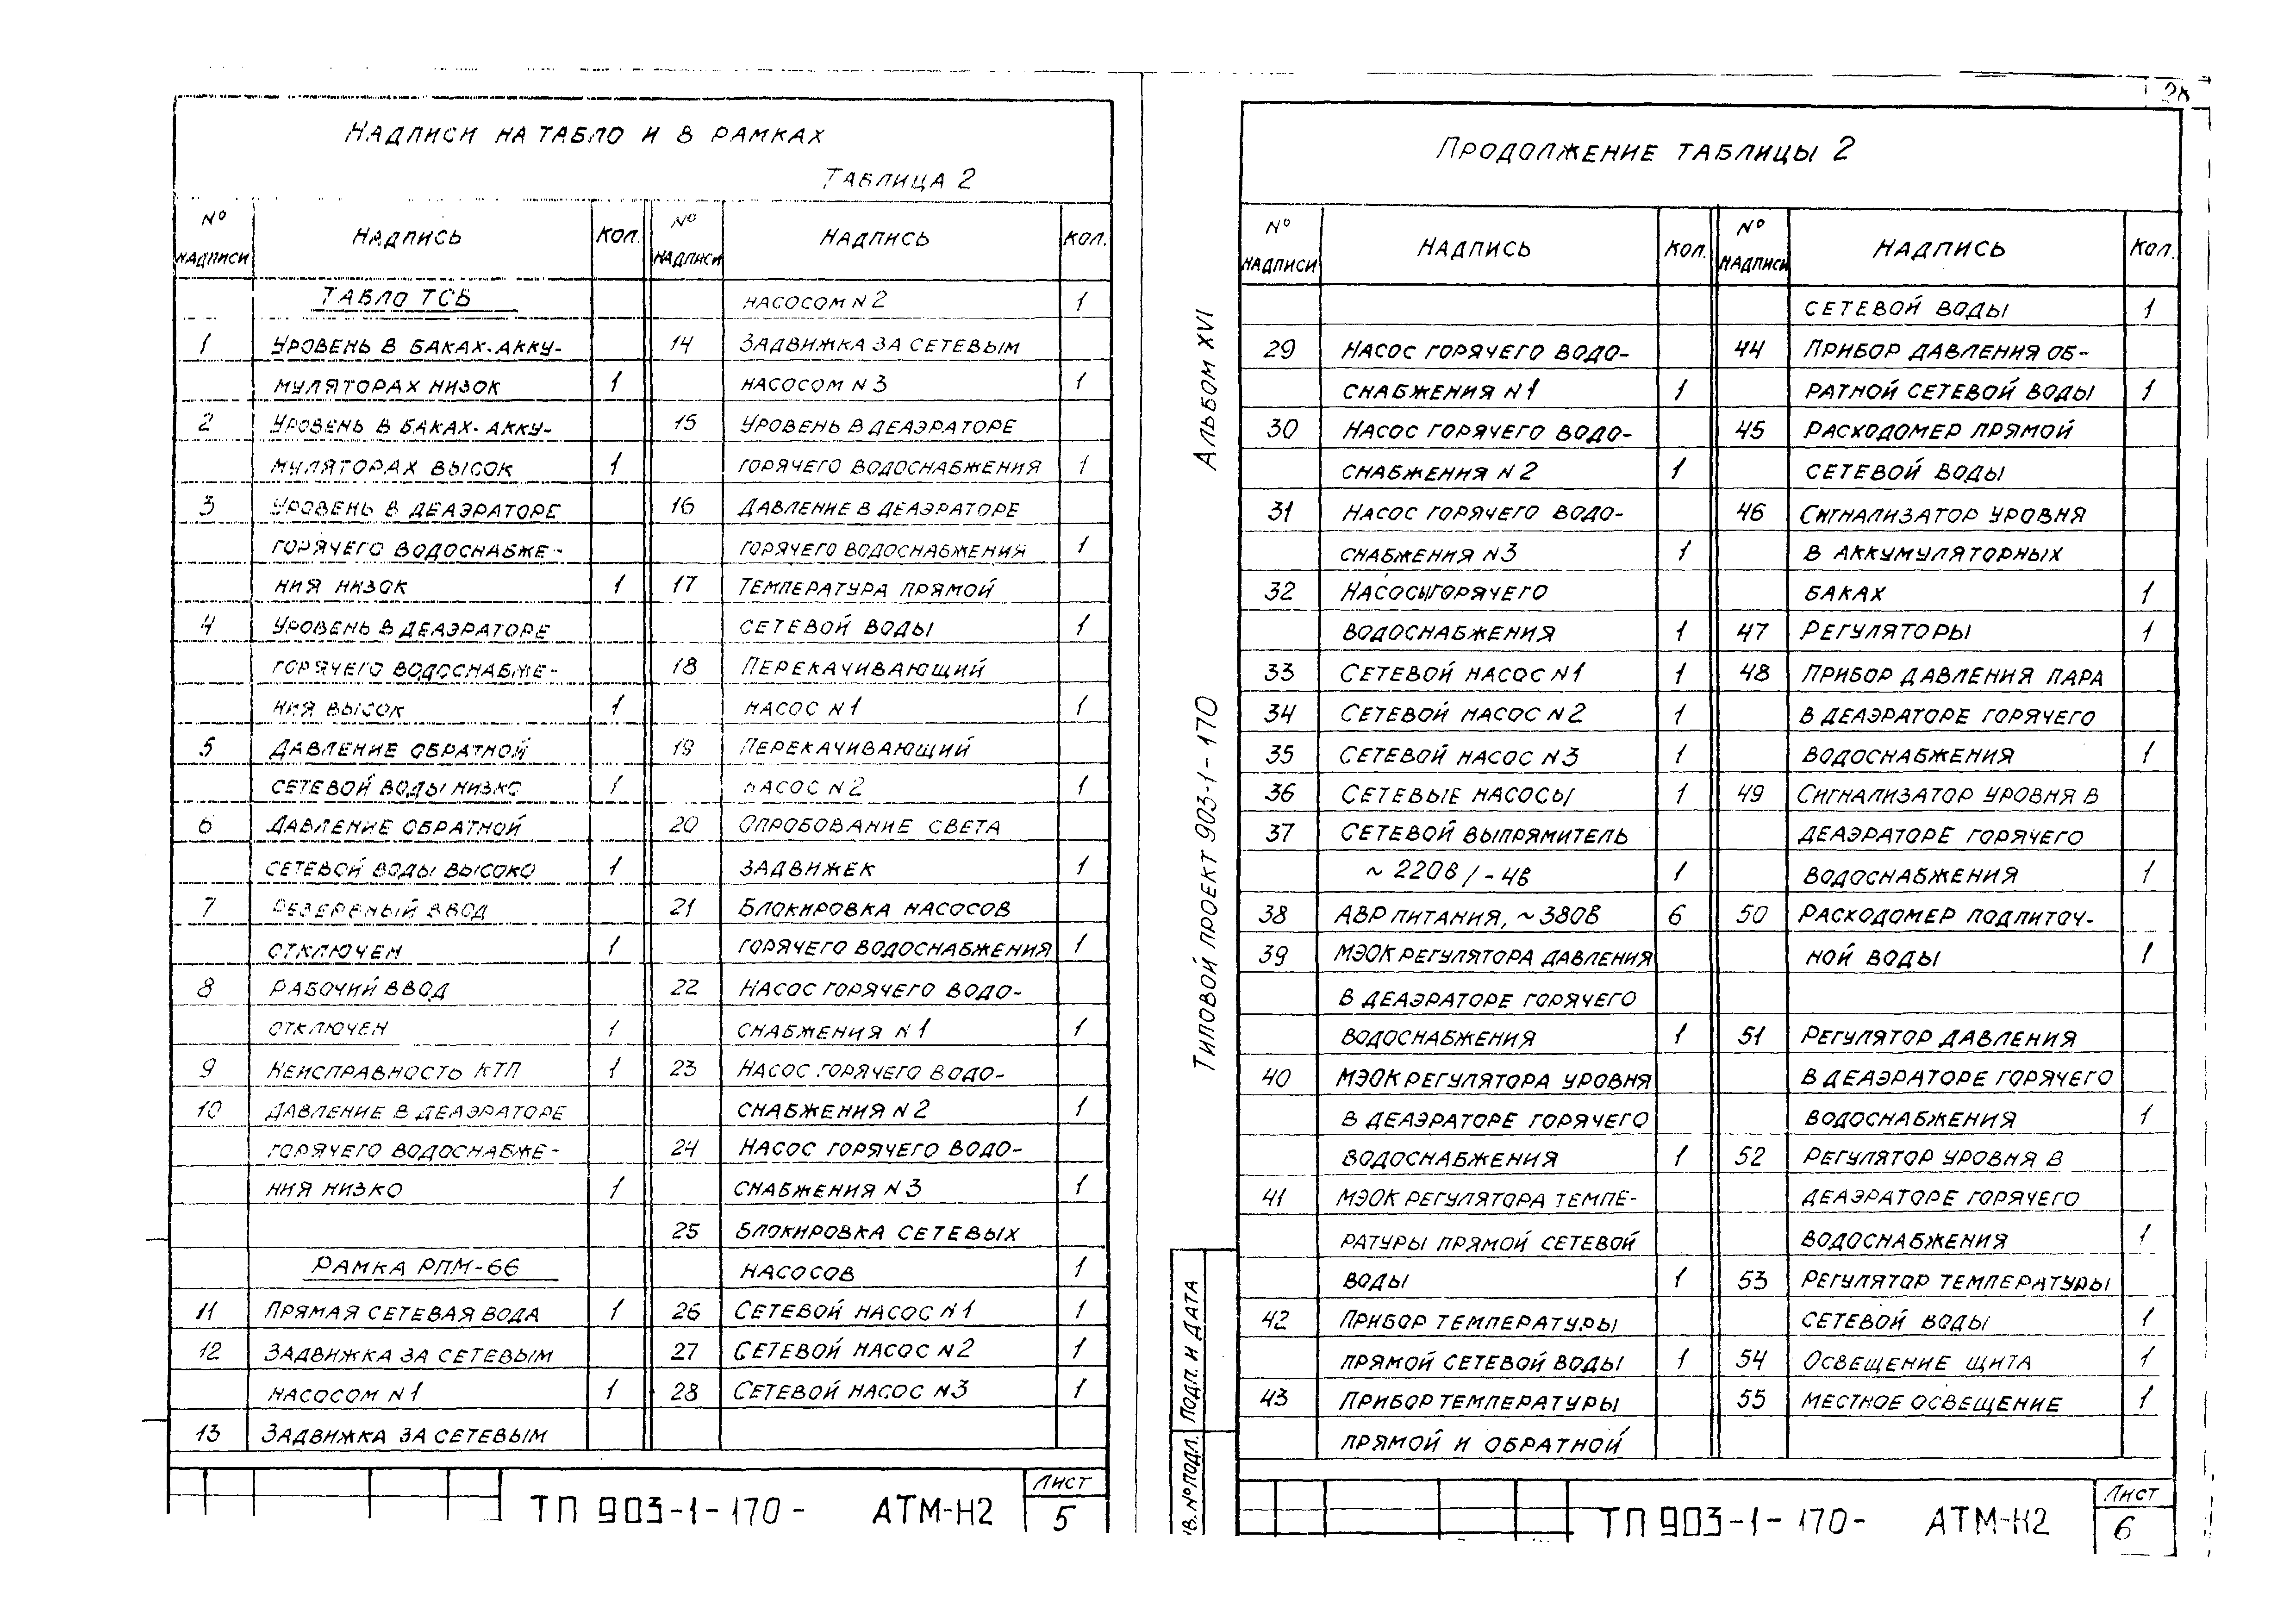 28
НАДПИСИ НА ТАБЛО И В РАМКАХ
ТАБЛИЦА 2
№ НАДПИСИ НАДПИСЬ КОЛ. № НАДПИСИ НАДПИСЬ КОЛ.
ТАБЛО ТСБ
1 УРОВЕНЬ В БАКАХ-АККУ-
МУЛЯТОРАХ НИЗОК 1
2 УРОВЕНЬ В БАКАХ-АККУ-
МУЛЯТОРАХ ВЫСОК 1
3 УРОВЕНЬ В ДЕАЭРАТОРЕ
ГОРЯЧЕГО ВОДОСНАБЖЕ-
НИЯ НИЗОК 1
4 УРОВЕНЬ В ДЕАЭРАТОРЕ
ГОРЯЧЕГО ВОДОСНАБЖЕ-
НИЯ ВЫСОК 1
5 ДАВЛЕНИЕ ОБРАТНОЙ
СЕТЕВОЙ ВОДЫ НИЗКО 1
6 ДАВЛЕНИЕ ОБРАТНОЙ
СЕТЕВОЙ ВОДЫ ВЫСОКО 1
7 РЕЗЕРВНЫЙ ВВОД
ОТКЛЮЧЕН 1
8 РАБОЧИЙ ВВОД
ОТКЛЮЧЕН 1
9 НЕИСПРАВНОСТЬ КТП 1
10 ДАВЛЕНИЕ В ДЕАЭРАТОРЕ
ГОРЯЧЕГО ВОДОСНАБЖЕ-
НИЯ НИЗКО 1
РАМКА РПМ-66
11 ПРЯМАЯ СЕТЕВАЯ ВОДА 1
12 ЗАДВИЖКА ЗА СЕТЕВЫМ
НАСОСОМ N1 1
13 ЗАДВИЖКА ЗА СЕТЕВЫМ
НАСОСОМ N2 1
14 ЗАДВИЖКА ЗА СЕТЕВЫМ
НАСОСОМ N3 1
15 УРОВЕНЬ В ДЕАЭРАТОРЕ
ГОРЯЧЕГО ВОДОСНАБЖЕНИЯ 1
16 ДАВЛЕНИЕ В ДЕАЭРАТОРЕ
ГОРЯЧЕГО ВОДОСНАБЖЕНИЯ 1
17 ТЕМПЕРАТУРА ПРЯМОЙ
СЕТЕВОЙ ВОДЫ 1
18 ПЕРЕКАЧИВАЮЩИЙ
НАСОС N1 1
19 ПЕРЕКАЧИВАЮЩИЙ
НАСОС N2 1
20 ОПРОБОВАНИЕ СВЕТА
ЗАДВИЖЕК 1
21 БЛОКИРОВКА НАСОСОВ
ГОРЯЧЕГО ВОДОСНАБЖЕНИЯ 1
22 НАСОС ГОРЯЧЕГО ВОДО-
СНАБЖЕНИЯ N1 1
23 НАСОС ГОРЯЧЕГО ВОДО-
СНАБЖЕНИЯ N2 1
24 НАСОС ГОРЯЧЕГО ВОДО-
СНАБЖЕНИЯ N3 1
25 БЛОКИРОВКА СЕТЕВЫХ
НАСОСОВ 1
26 СЕТЕВОЙ НАСОС N1 1
27 СЕТЕВОЙ НАСОС N2 1
28 СЕТЕВОЙ НАСОС N3 1
ТП 903-1-170- АТМ-Н2
ЛИСТ
5
АЛЬБОМ XVI
ТИПОВОЙ ПРОЕКТ 903-1-170
ПОДП. И ДАТА
ИВ. № ПОДЛ.
ПРОДОЛЖЕНИЕ ТАБЛИЦЫ 2
№ НАДПИСИ НАДПИСЬ КОЛ. № НАДПИСИ НАДПИСЬ КОЛ.
29 НАСОС ГОРЯЧЕГО ВОДО-
СНАБЖЕНИЯ N1 1
30 НАСОС ГОРЯЧЕГО ВОДО-
СНАБЖЕНИЯ N2 1
31 НАСОС ГОРЯЧЕГО ВОДО-
СНАБЖЕНИЯ N3 1
32 НАСОСЫ ГОРЯЧЕГО
ВОДОСНАБЖЕНИЯ 1
33 СЕТЕВОЙ НАСОС N1 1
34 СЕТЕВОЙ НАСОС N2 1
35 СЕТЕВОЙ НАСОС N3 1
36 СЕТЕВЫЕ НАСОСЫ 1
37 СЕТЕВОЙ ВЫПРЯМИТЕЛЬ
~220В/-4В 1
38 АВР ПИТАНИЯ, ~380В 6
39 МЭОК РЕГУЛЯТОРА ДАВЛЕНИЯ
В ДЕАЭРАТОРЕ ГОРЯЧЕГО
ВОДОСНАБЖЕНИЯ 1
40 МЭОК РЕГУЛЯТОРА УРОВНЯ
В ДЕАЭРАТОРЕ ГОРЯЧЕГО
ВОДОСНАБЖЕНИЯ 1
41 МЭОК РЕГУЛЯТОРА ТЕМПЕ-
РАТУРЫ ПРЯМОЙ СЕТЕВОЙ
ВОДЫ 1
42 ПРИБОР ТЕМПЕРАТУРЫ
ПРЯМОЙ СЕТЕВОЙ ВОДЫ 1
43 ПРИБОР ТЕМПЕРАТУРЫ
ПРЯМОЙ И ОБРАТНОЙ
СЕТЕВОЙ ВОДЫ 1
44 ПРИБОР ДАВЛЕНИЯ ОБ-
РАТНОЙ СЕТЕВОЙ ВОДЫ 1
45 РАСХОДОМЕР ПРЯМОЙ
СЕТЕВОЙ ВОДЫ
46 СИГНАЛИЗАТОР УРОВНЯ
В АККУМУЛЯТОРНЫХ
БАКАХ 1
47 РЕГУЛЯТОРЫ 1
48 ПРИБОР ДАВЛЕНИЯ ПАРА
В ДЕАЭРАТОРЕ ГОРЯЧЕГО
ВОДОСНАБЖЕНИЯ 1
49 СИГНАЛИЗАТОР УРОВНЯ В
ДЕАЭРАТОРЕ ГОРЯЧЕГО
ВОДОСНАБЖЕНИЯ 1
50 РАСХОДОМЕР ПОДПИТОЧ-
НОЙ ВОДЫ 1
51 РЕГУЛЯТОР ДАВЛЕНИЯ
В ДЕАЭРАТОРЕ ГОРЯЧЕГО
ВОДОСНАБЖЕНИЯ 1
52 РЕГУЛЯТОР УРОВНЯ В
ДЕАЭРАТОРЕ ГОРЯЧЕГО
ВОДОСНАБЖЕНИЯ 1
53 РЕГУЛЯТОР ТЕМПЕРАТУРЫ
СЕТЕВОЙ ВОДЫ 1
54 ОСВЕЩЕНИЕ ЩИТА 1
55 МЕСТНОЕ ОСВЕЩЕНИЕ 1
ТП 903-1-170- АТМ-Н2
ЛИСТ
6